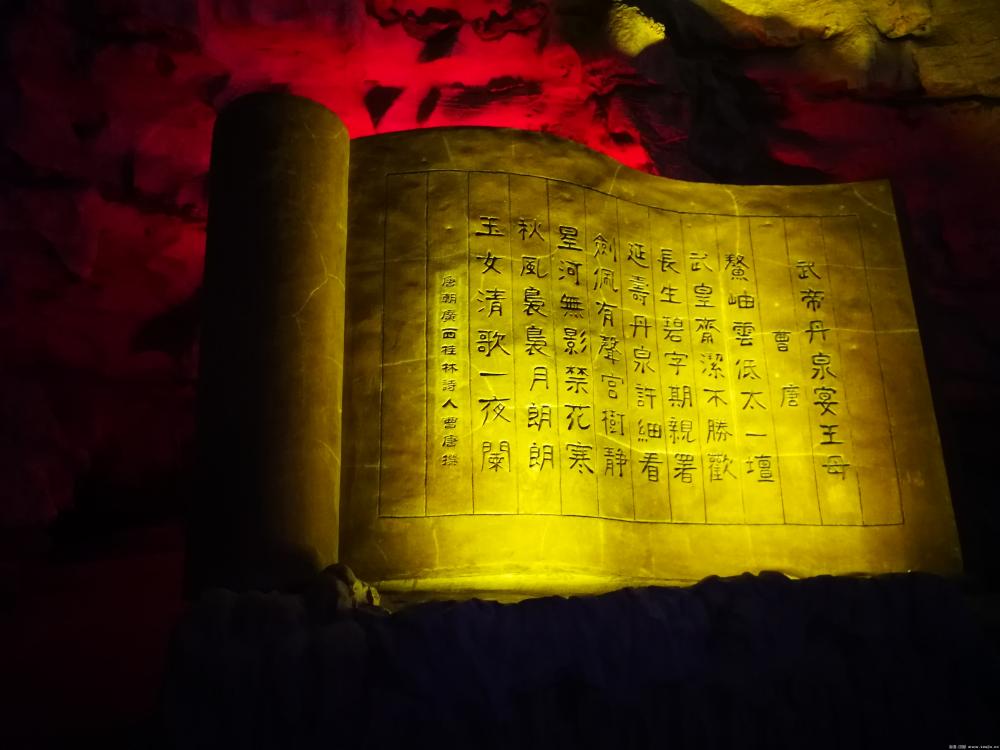 武帝丹泉宴王母
曹唐
鰲岫雲低太一壇
武皇齋潔不勝歡
長生碧字期親署
延壽丹泉許細看
劍佩有聲宮樹静
星河無影禁花寒
秋風裊裊月朗朗
玉女清歌一夜闌
唐朝廣西桂林詩人曹唐撰